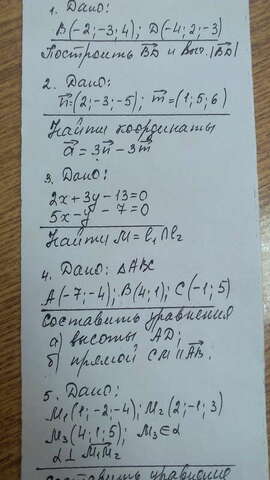 1. Дано:
B(-2;-3;4); D(-4;2;-3)
Построить BD и Выч. |BD|
2. Дано:
n=(2;-3;-5); m=(1;5;6)
Найти координаты
a = 3n - 3m
3. Дано:
2x+3y-13=0
5x-y-7=0
Найти M = l₁∩l₂
4. Дано: △ABC
A(-7;-4); B(4;1); C(-1;5)
Составить уравнения
а) высоты AD;
б) прямой CM||AB.
5. Дано:
M₁(1;-2;-4); M₂(2;-1;3)
M₃(4;1;5); M₃∈α
α⊥M₁M₂
Составить уравнение